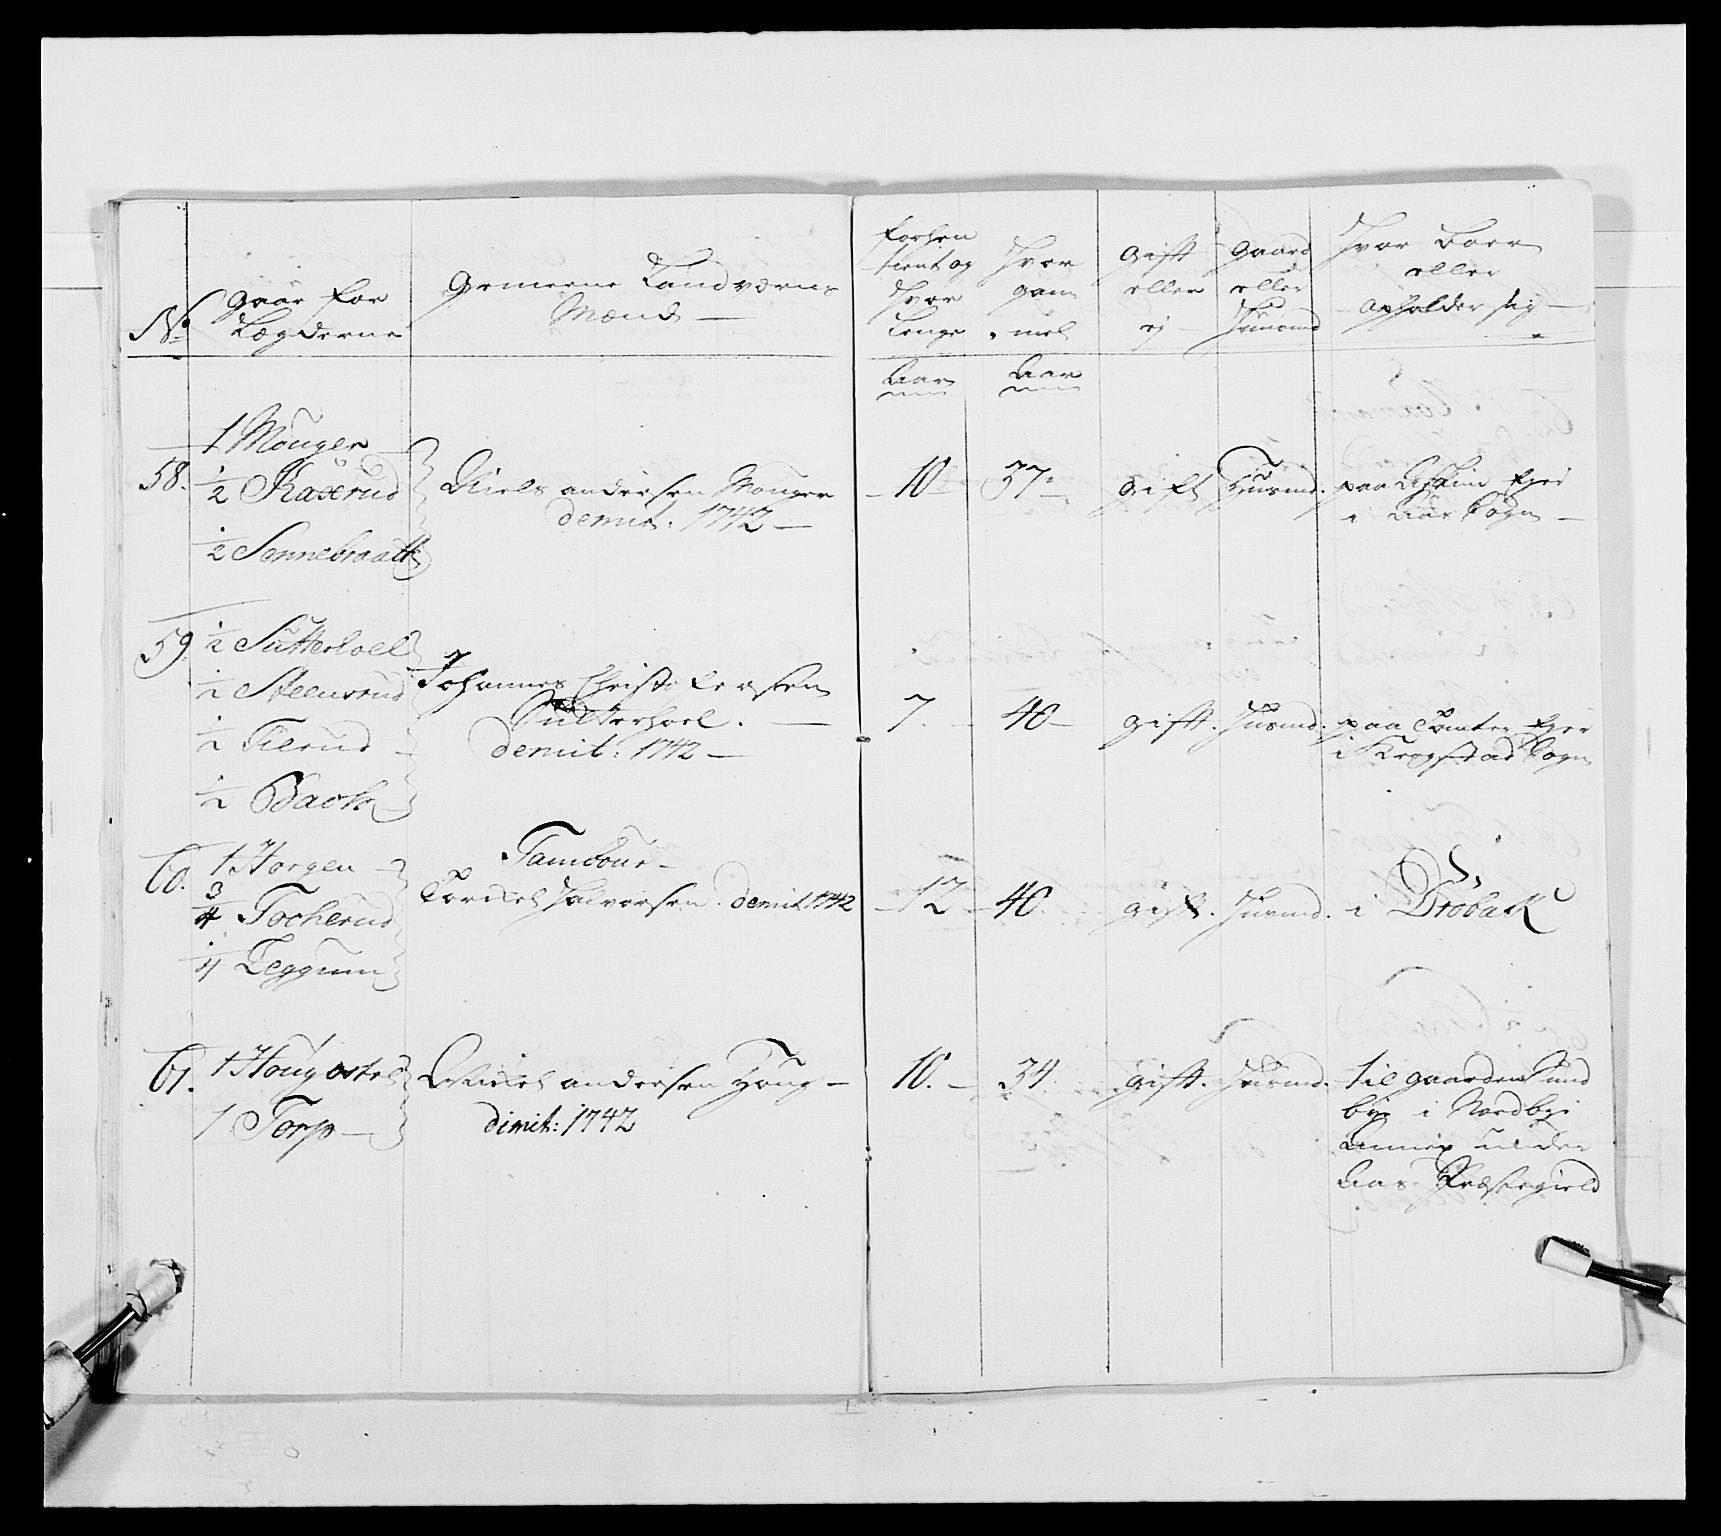 No
gaar for
Lægderne
Gemeene Landværns
Mænd —
forhen
tient og
Hvor
Lenge
Hvor
gam
mel
gift
eller
ej
gaard
eller
Huusmd
Hvor Boer
eller
opholder sig —
Aar
Aar
58.
1 Mouger
1/2 Kaxrud
1/2 Sonnebraatt
Niels andersen Mouger
demit: 1742 —
10
37
gift
Huusmd.
paa Askim Eyer
i Aas Sogn —
59
1/2 Sütterhoel
1/2 Steensrud
1/2 Tierud
1/2 Bach
Johannes Christofersen
Sütterhoel. —
demit: 1742 —
7.
40
gift.
Huusmd.
paa Tomter Eyer
i Krogstad Sogn
60.
1 Horgen
3/4 Tocherud
1/4 Leggum
Tambour
Tordsel Halvorsen. demit 1742
12
40.
gift.
Huusmd.
i Drøbak
61.
1 Houg østre
1 Torp —
andersen Houg —
dimit: 1742
10.
34.
gift.
Huusmd.
til gaarden Sund
bye i Nordbye
Annex under
Aas Præstegield